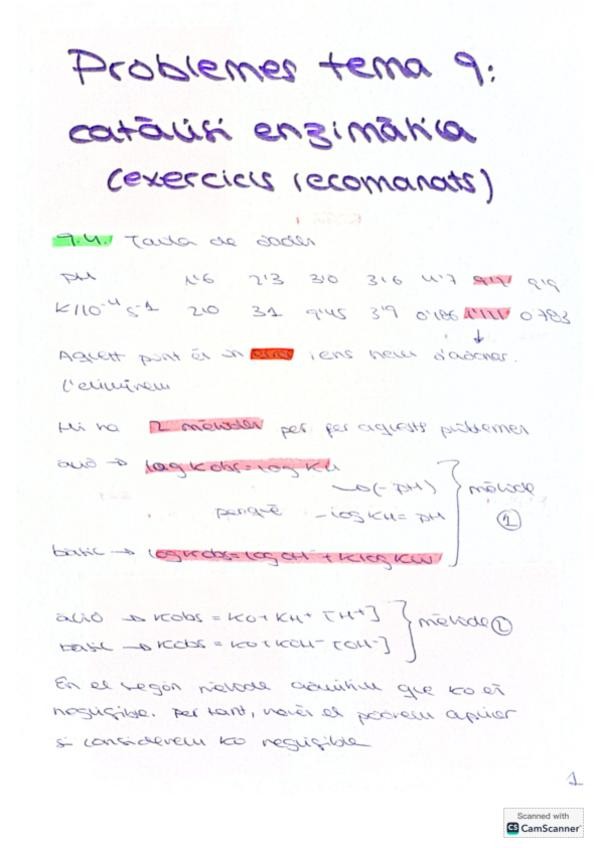 Problemes tema 9:
catàlisi enzimàtica
(exercicis recomanats)
9.4. Taula de dades
pH 1'6 2'3 3'0 3'6 4'7 9'9
K/10⁻⁴ s⁻¹ 20 31 9'45 3'9 0'186 0'783
Aquest punt és un error i ens hem d'adonar.
l'eliminem
Hi ha 2 mètodes per fer aquests problemes
àcid → log Kobs = log KH
→ (-pH) mètode
perquè -log KH = pH ①
bàsic → log Kobs = log OH + K log KW
àcid → Kobs = K0 + KH+ [H+] mètode ②
bàsic → Kobs = K0 + KOH- [OH-]
En el segon mètode admitim que K0 és
negligible. Per tant, només el podrem aplicar
si considerem K0 negligible
1
Scanned with
CS CamScanner